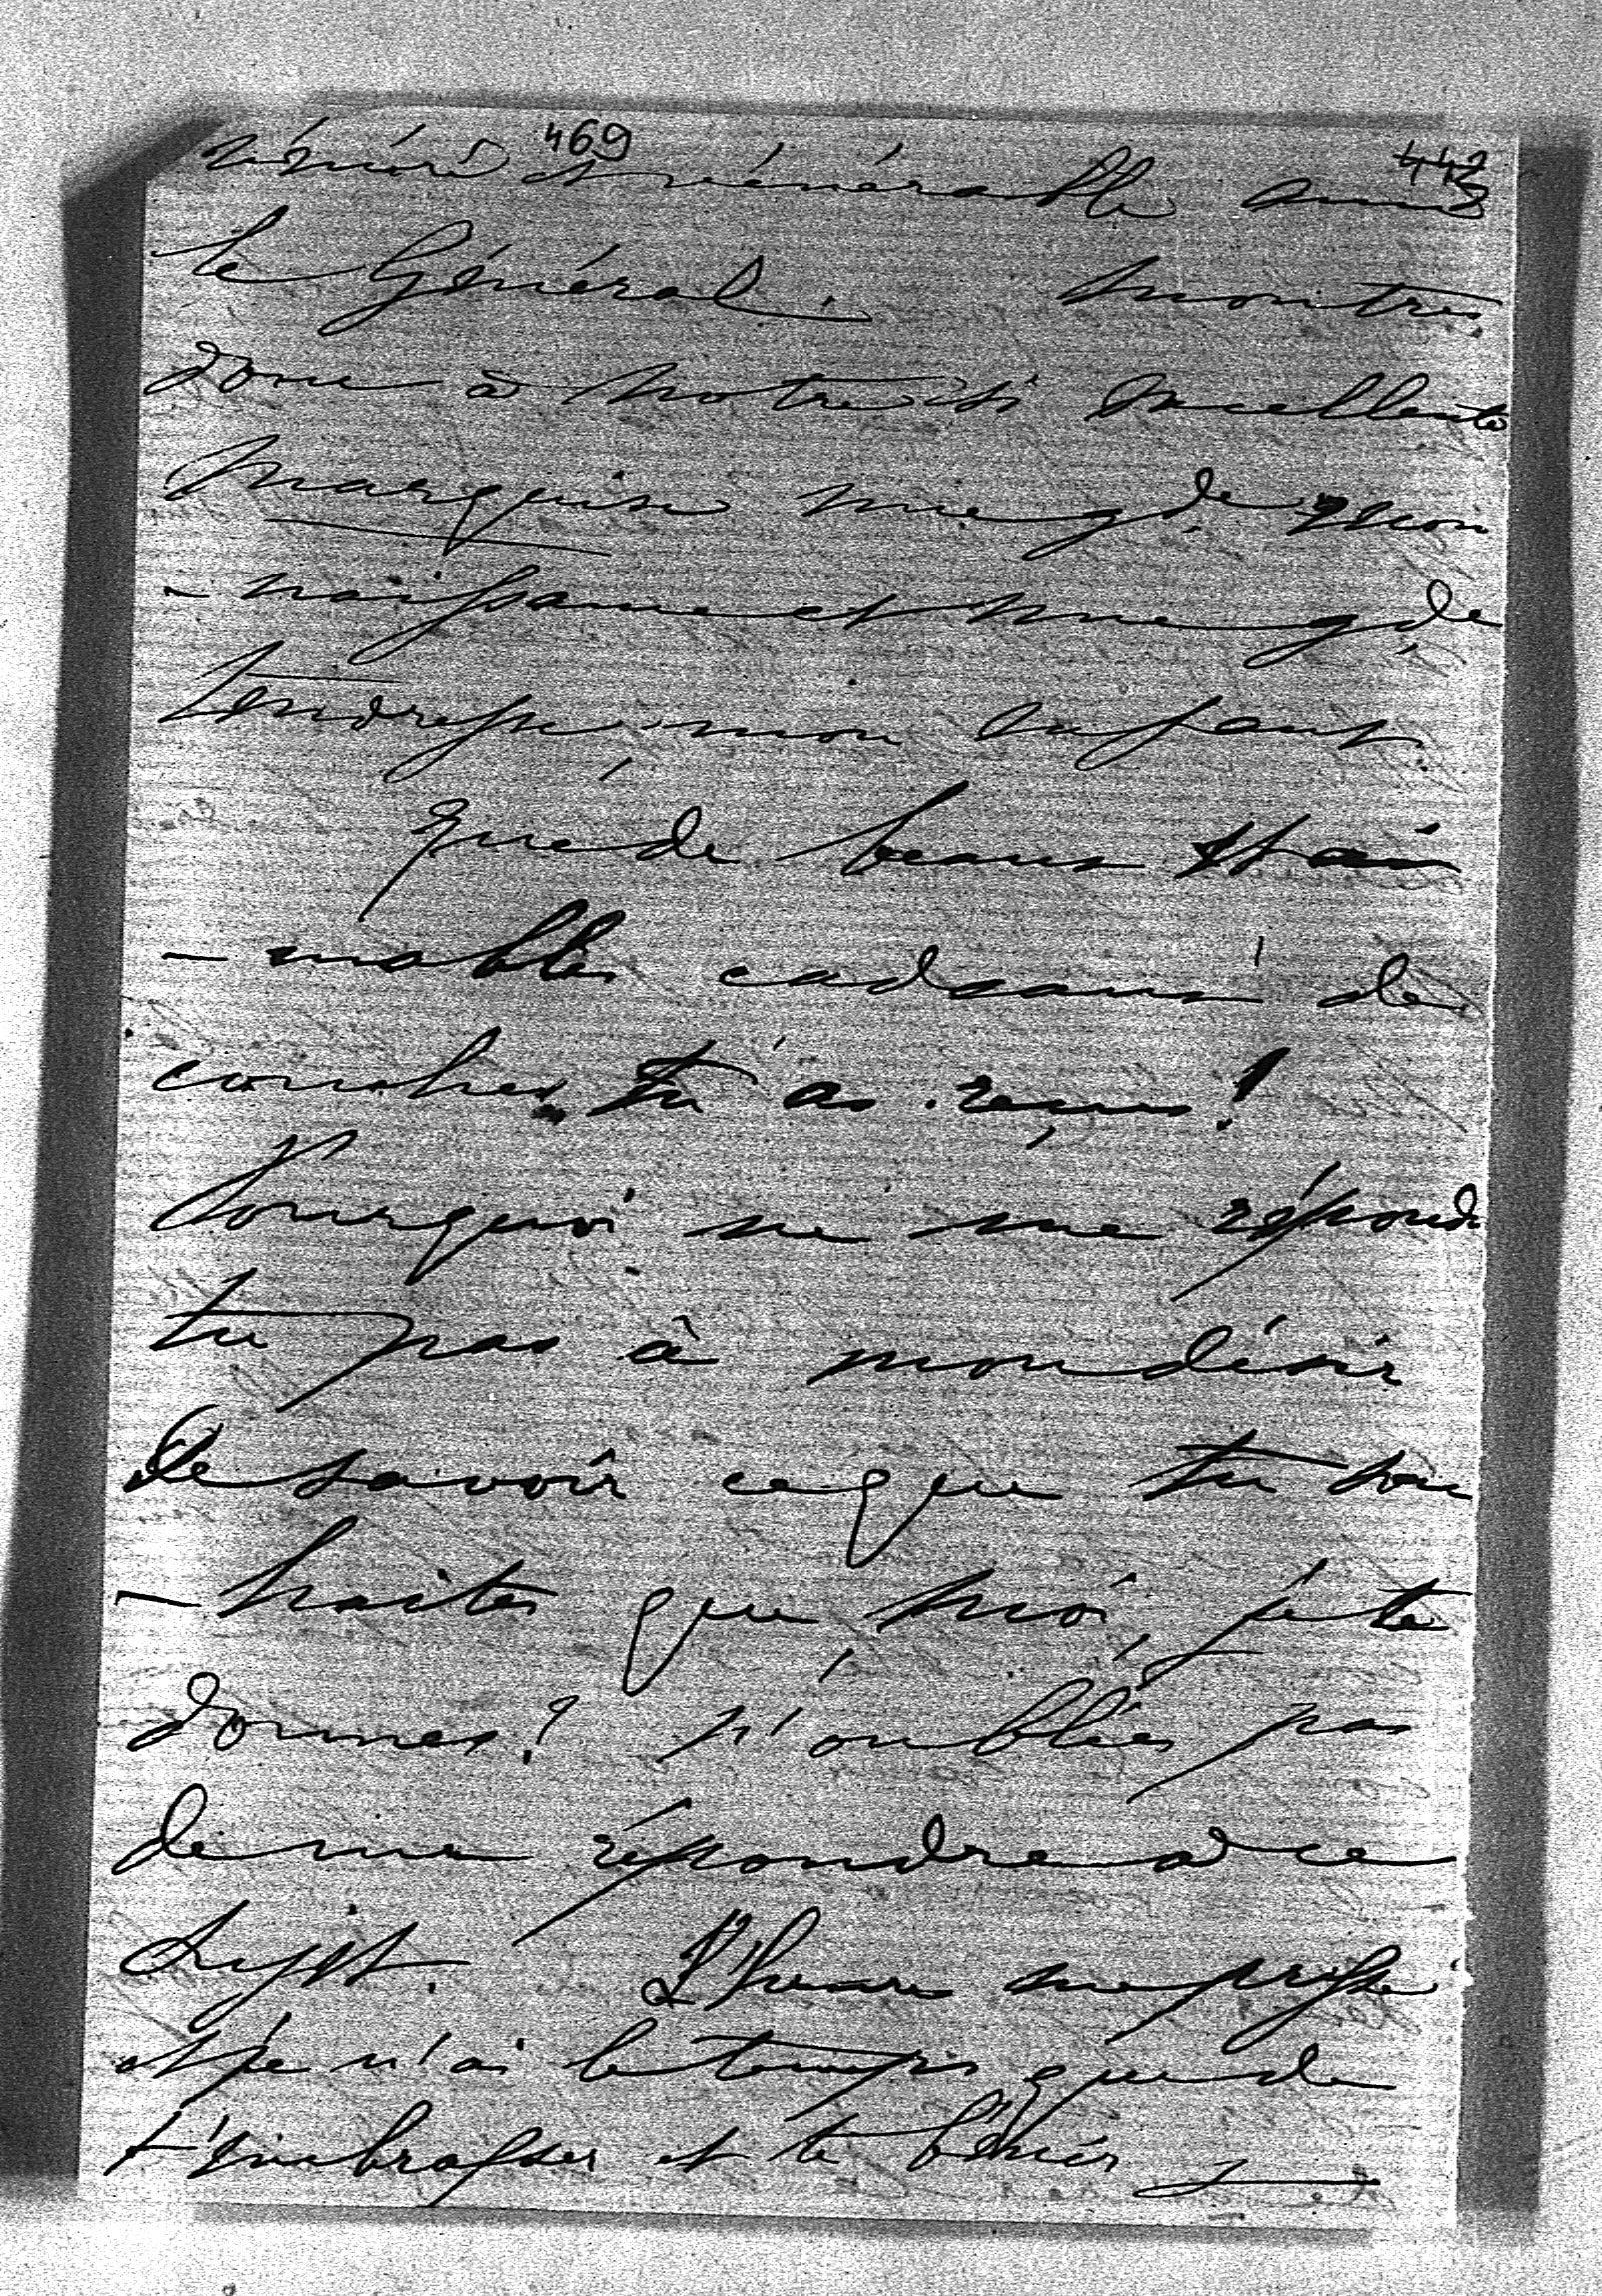 469
442
vénéré et vénérable ami
le Général. Montres
donc à notre si excellente
Marquise une gde recon
- naissance et une gde
tendresse, mon enfant.
que de beaux et ai
- mables cadeaux de
couches tu as reçus!
Pourquoi ne me réponds
tu pas à mon désir
de savoir ce que tu sou
- haites que moi, je te
donnes? N'oublies pas
de me répondre à ce
sujet. L'heure me presse
et je n'ai le temps que de
t'embrasser et te bénir